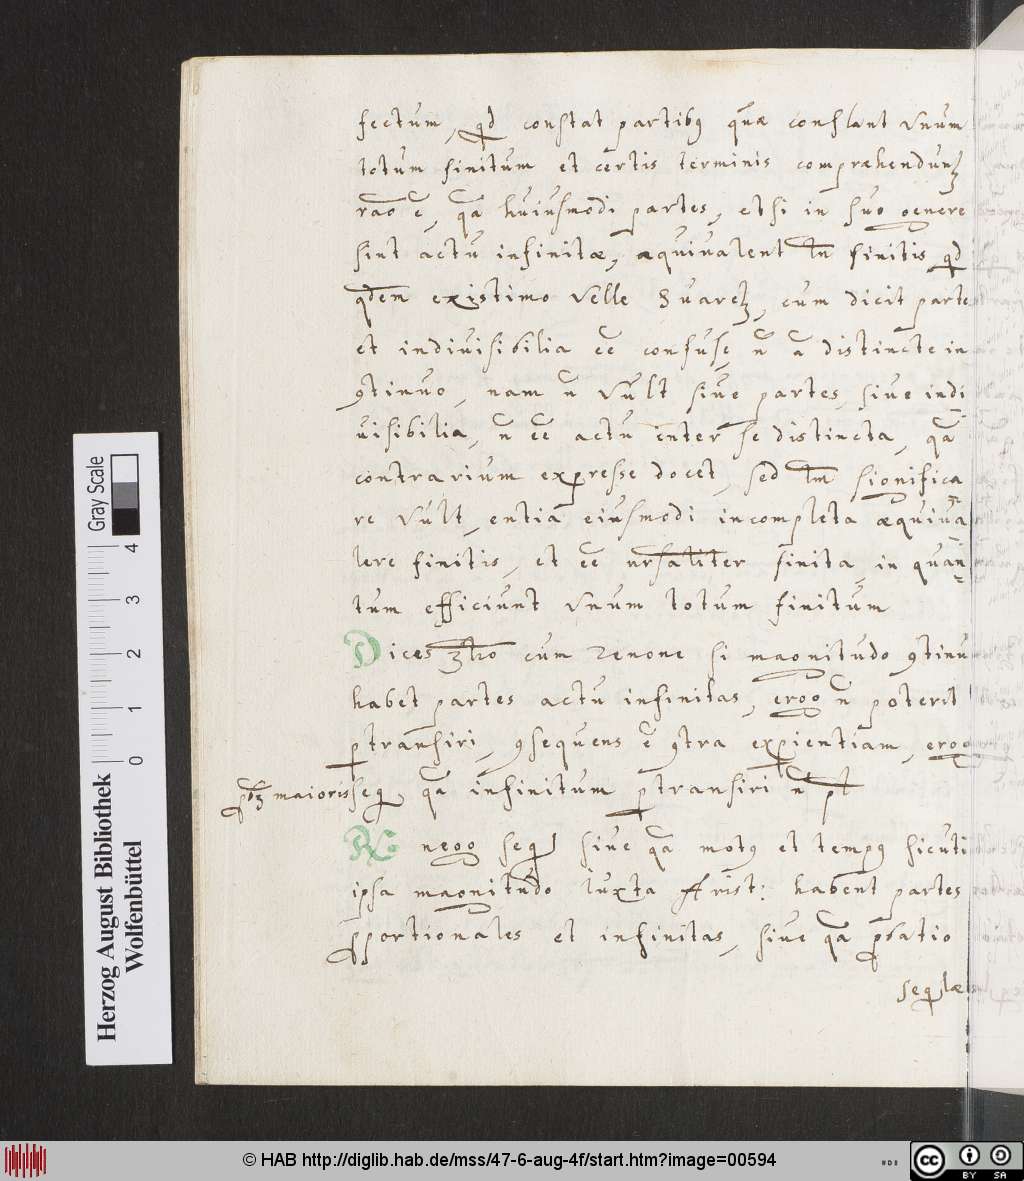 fectum, qd constat partibꝯ quæ conflant vnum
totum finitum et certis terminis compræhendunꝫ
rao ẽ, qa huiusmodi partes, etsi in suo genere
sint actu infinitæ, æquiualent tn finitis qd
qdem existimo velle Suarez, cum dicit parte
et indiuisibilia ẽe confuse, ñ a distincte in
ꝯtinuo, nam ñ vult siue partes, siue indi-
uisibilia, ñ ẽe actu inter se distincta, qa
contrarium expresse docet, sed tm significa
re vult, entia eiusmodi incompleta æquiua-
lere finitis, et ẽe ursaliter finita, in quan-
tum efficiunt vnum totum finitum
Dices 3tio cum Zenone si magnitudo ꝯtinu
habet partes actu infinitas, ergo ñ poterit
ꝑtransiri, ꝯsequens ẽ ꝯtra exꝑientiam, ergo
maioris seq qa infinitum ꝑtransiri ñ pt
Rō nego seq siue qa motꝯ et tempꝯ sicuti
ipsa magnitudo iuxta Arist: habent partes
ꝓportionales et infinitas, siue qa ꝓbatio
seqlæ
Herzog August Bibliothek
Wolfenbüttel
Gray Scale
0 1 2 3 4
© HAB http://diglib.hab.de/mss/47-6-aug-4f/start.htm?image=00594
cc BY SA